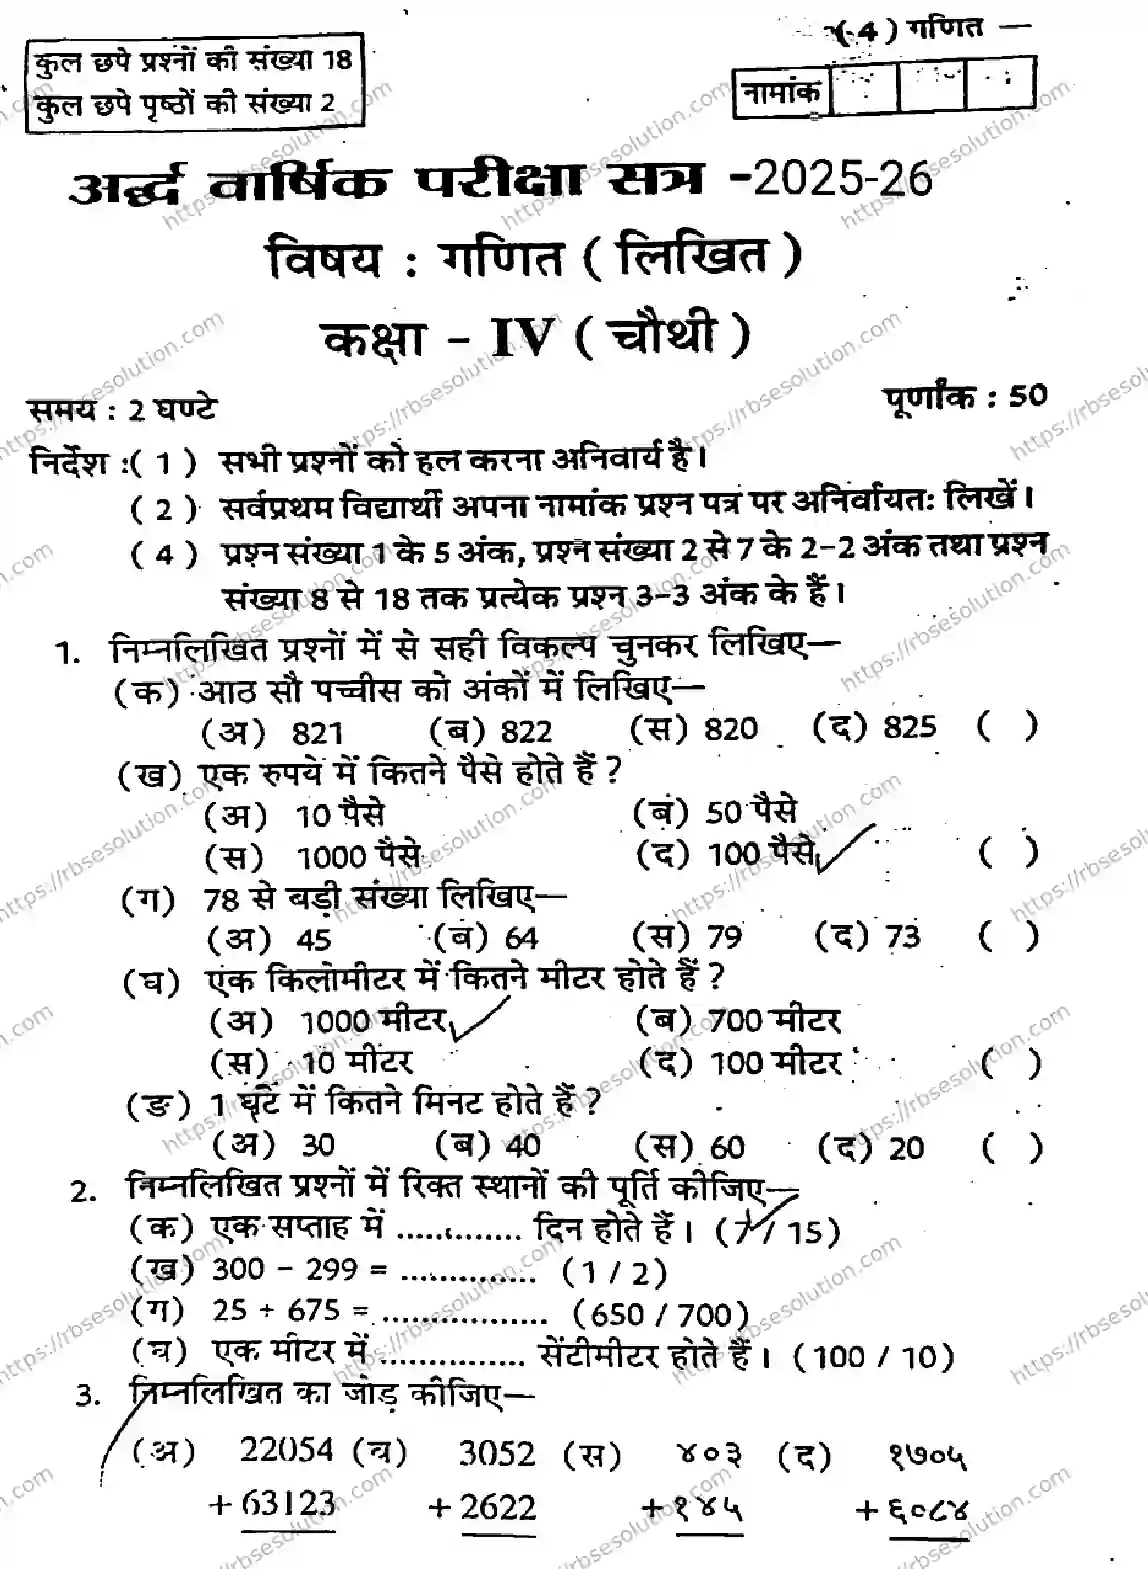 (-4) गणित —
कुल छपे प्रश्नों की संख्या 18
कुल छपे पृष्ठों की संख्या 2
नामांक
अर्द्ध वार्षिक परीक्षा सत्र -2025-26
विषय : गणित ( लिखित )
कक्षा - IV ( चौथी )
समय : 2 घण्टे
पूर्णांक : 50
निर्देश :( 1 ) सभी प्रश्नों को हल करना अनिवार्य है।
( 2 ) सर्वप्रथम विद्यार्थी अपना नामांक प्रश्न पत्र पर अनिर्वायतः लिखें।
( 4 ) प्रश्न संख्या 1 के 5 अंक, प्रश्न संख्या 2 से 7 के 2-2 अंक तथा प्रश्न
संख्या 8 से 18 तक प्रत्येक प्रश्न 3-3 अंक के हैं।
1. निम्नलिखित प्रश्नों में से सही विकल्प चुनकर लिखिए—
(क) आठ सौ पच्चीस को अंकों में लिखिए—
(अ) 821 (ब) 822 (स) 820 (द) 825 ( )
(ख) एक रुपये में कितने पैसे होते हैं ?
(अ) 10 पैसे (ब) 50 पैसे
(स) 1000 पैसे (द) 100 पैसे ( )
(ग) 78 से बड़ी संख्या लिखिए—
(अ) 45 (ब) 64 (स) 79 (द) 73 ( )
(घ) एक किलोमीटर में कितने मीटर होते हैं ?
(अ) 1000 मीटर (ब) 700 मीटर
(स) 10 मीटर (द) 100 मीटर ( )
(ङ) 1 घंटे में कितने मिनट होते हैं ?
(अ) 30 (ब) 40 (स) 60 (द) 20 ( )
2. निम्नलिखित प्रश्नों में रिक्त स्थानों की पूर्ति कीजिए—
(क) एक सप्ताह में ............. दिन होते हैं। (7 / 15)
(ख) 300 - 299 = .............. (1 / 2)
(ग) 25 + 675 = ................. (650 / 700)
(घ) एक मीटर में ............... सेंटीमीटर होते हैं। (100 / 10)
3. निम्नलिखित का जोड़ कीजिए—
(अ) 22054 (ब) 3052 (स) ४०३ (द) १७०५
+ 63123 + 2622 + १४५ + ६०८४
https://rbsesolution.com